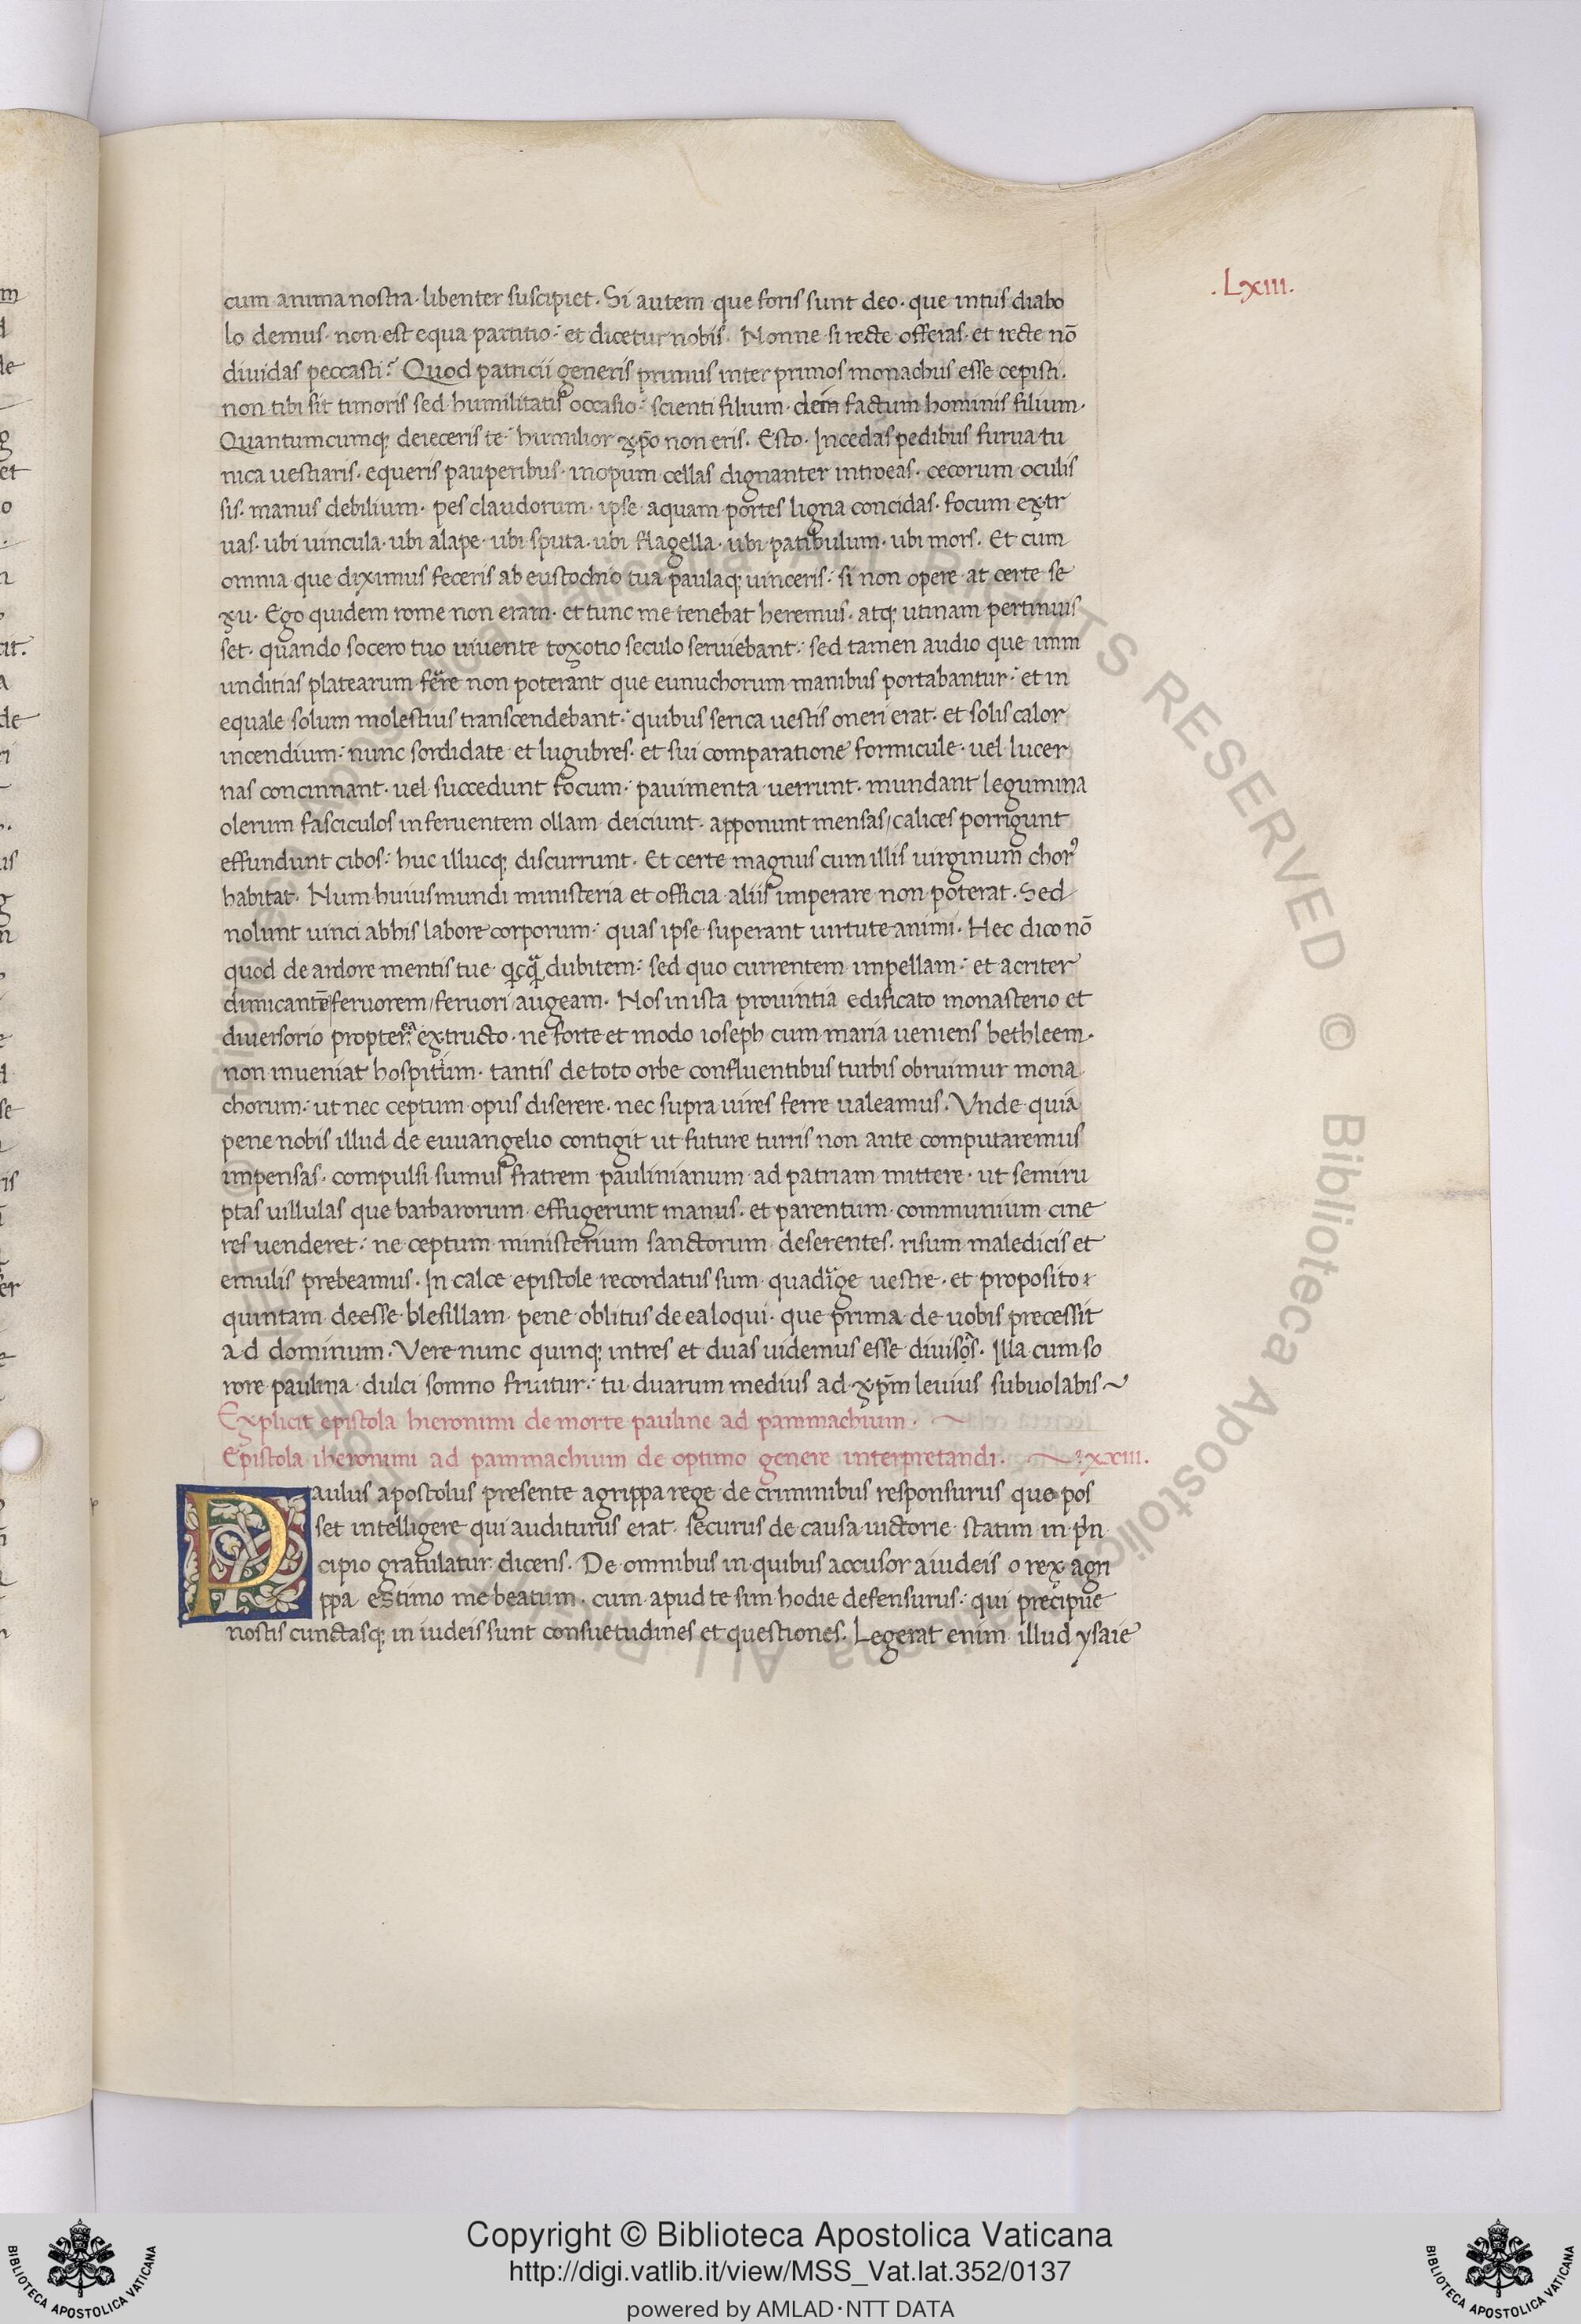 .Lxiii.
cum anima nostra· libenter suscipiet. Si autem que foris sunt deo· que intus diabo
lo demus· non est equa partitio: et dicetur nobis. Nonne si recte offeras· et recte nō
diuidas peccasti? Quod patricii generis primus inter primos monachus esse cepisti.
non tibi sit timoris sed humilitatis occasio: scienti filium dei factum hominis filium.
Quantumcumq; deieceris te: humilior xp̄o non eris. Esto. Incedas pedibus furua tu
nica uestiaris· equeris pauperibus· inopum cellas dignanter introeas· cecorum oculis
sis· manus debilium· pes claudorum· ipse aquam portes ligna concidas· focum extr
uas· ubi uincula· ubi alape· ubi sputa· ubi flagella· ubi patibulum· ubi mors. Et cum
omnia que diximus feceris ab eustochio tua paulaq; uinceris: si non opere at certe se
xu. Ego quidem rome non eram· et tunc me tenebat heremus· atq; utinam pertinuis
set· quando socero tuo uiuente toxotio seculo seruiebant: sed tamen audio que imm
unditias platearum ferre non poterant que eunuchorum manibus portabantur: et in
equale solum molestius transcendebant: quibus serica uestis oneri erat· et solis calor
incendium: nunc sordidate et lugubres· et sui comparatione formicule· uel lucer
nas concinnant· uel succedunt focum: pauimenta uerrunt· mundant legumina
olerum fasciculos in feruentem ollam deiciunt· apponunt mensas/calices porrigunt
effundunt cibos: huc illucq; discurrunt. Et certe magnus cum illis uirginum chorꝰ
habitat. Num huiusmundi ministeria et officia aliis imperare non poterat. Sed
nolunt uinci ab his labore corporum: quas ipse superant uirtute animi. Hec dico nō
quod de ardore mentis tue dubitem: sed quo currentem impellam: et acriter
dimicantē feruorem/feruori/augeam. Nos in ista prouintia edificato monasterio et
diuersorio propter ea extructo· ne forte et modo ioseph cum maria ueniens bethleem·
non inueniat hospitium· tantis de toto orbe confluentibus turbis obruimur mona
chorum: ut nec ceptum opus diserere· nec supra uires ferre ualeamus. Vnde quia
pene nobis illud de euuangelio contigit ut future turris non ante computaremus
impensas· compulsi sumus fratrem paulinianum ad patriam mittere· ut semiru
ptas uillulas que barbarorum effugerunt manus· et parentum communium cine
res uenderet: ne ceptum ministerium sanctorum deserentes· risum maledicis et
emulis prebeamus. In calce epistole recordatus sum quadrige uestre· et propositoꝛ
quintam deesse blesillam pene oblitus de ea loqui· que prima de uobis precessit
ad dominum. Vere nunc quinq; in tres et duas uidemus esse diuisas. Illa cum so
rore paulina dulci somno fruitur: tu duarum medius ad xp̄m leuius subuolabis~
Explicit epistola hieronimi de morte pauline ad pammachium·
Epistola iheronimi ad pammachium de optimo genere interpretandi.
Paulus apostolus presente agrippa rege de criminibus responsurus que pos
set intelligere qui auditurus erat· securus de causa uictorie statim in prin
cipio gratulatur dicens. De omnibus in quibus accusor a iudeis o rex agri
ppa estimo me beatum· cum apud te sim hodie defensurus: qui precipue
nostis cunctasq; in iudeis sunt consuetudines et questiones. Legerat enim illud ysaie
Copyright © Biblioteca Apostolica Vaticana
http://digi.vatlib.it/view/MSS_Vat.lat.352/0137
powered by AMLAD·NTT DATA